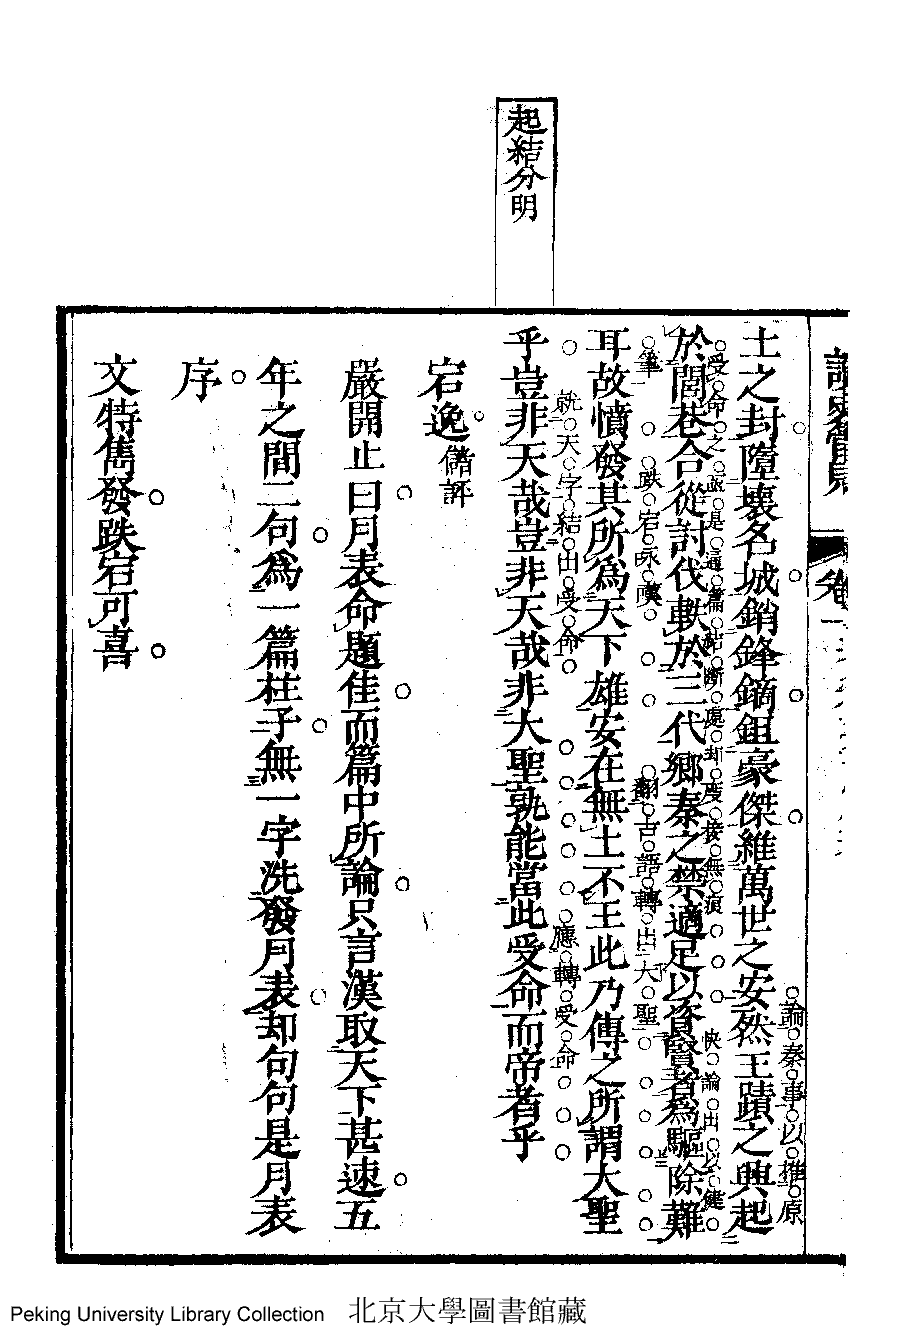 起結分明
土之封墮壞名城銷鋒鏑鉏豪傑維萬世之安然王蹟之興起
論秦事以推原
於閭巷合從討伐軼於三代鄉秦之禁適足以資賢者爲驅除難
受命之
是通篇結斷處却
接無
快論出以健
耳故憤發其所爲天下雄安在無土不王此乃傳之所謂大聖
筆
跌宕咏嘆
翻古語轉出大聖
乎豈非天哉豈非天哉非大聖孰能當此受命而帝者乎
就天字結出受命
應轉受命
宕逸儲評
嚴開止曰月表命題佳而篇中所論只言漢取天下甚速五
年之間二句爲一篇柱子無一字洗發月表却句句是月表
序
文特雋發跌宕可喜
Peking University Library Collection 北京大學圖書館藏